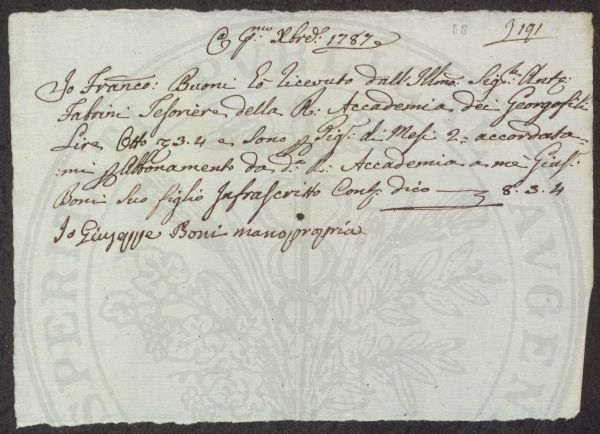 @ P.mo Xbre 1787
191
Io Franco: Buoni ho ricevuto dall'Illmo: Sigre Ant:
Fabrini Tesoriere della R: Accademia dei Georgofili
Lire Otto 3.4 e sono Pig: di Mesi 2 accordata-
mi Abbonamento da d.a R. Accademia a me Gius:
Boni suo figlio Infrascritto Cont: dico 8.3.4
Io Giuseppe Boni mano propria